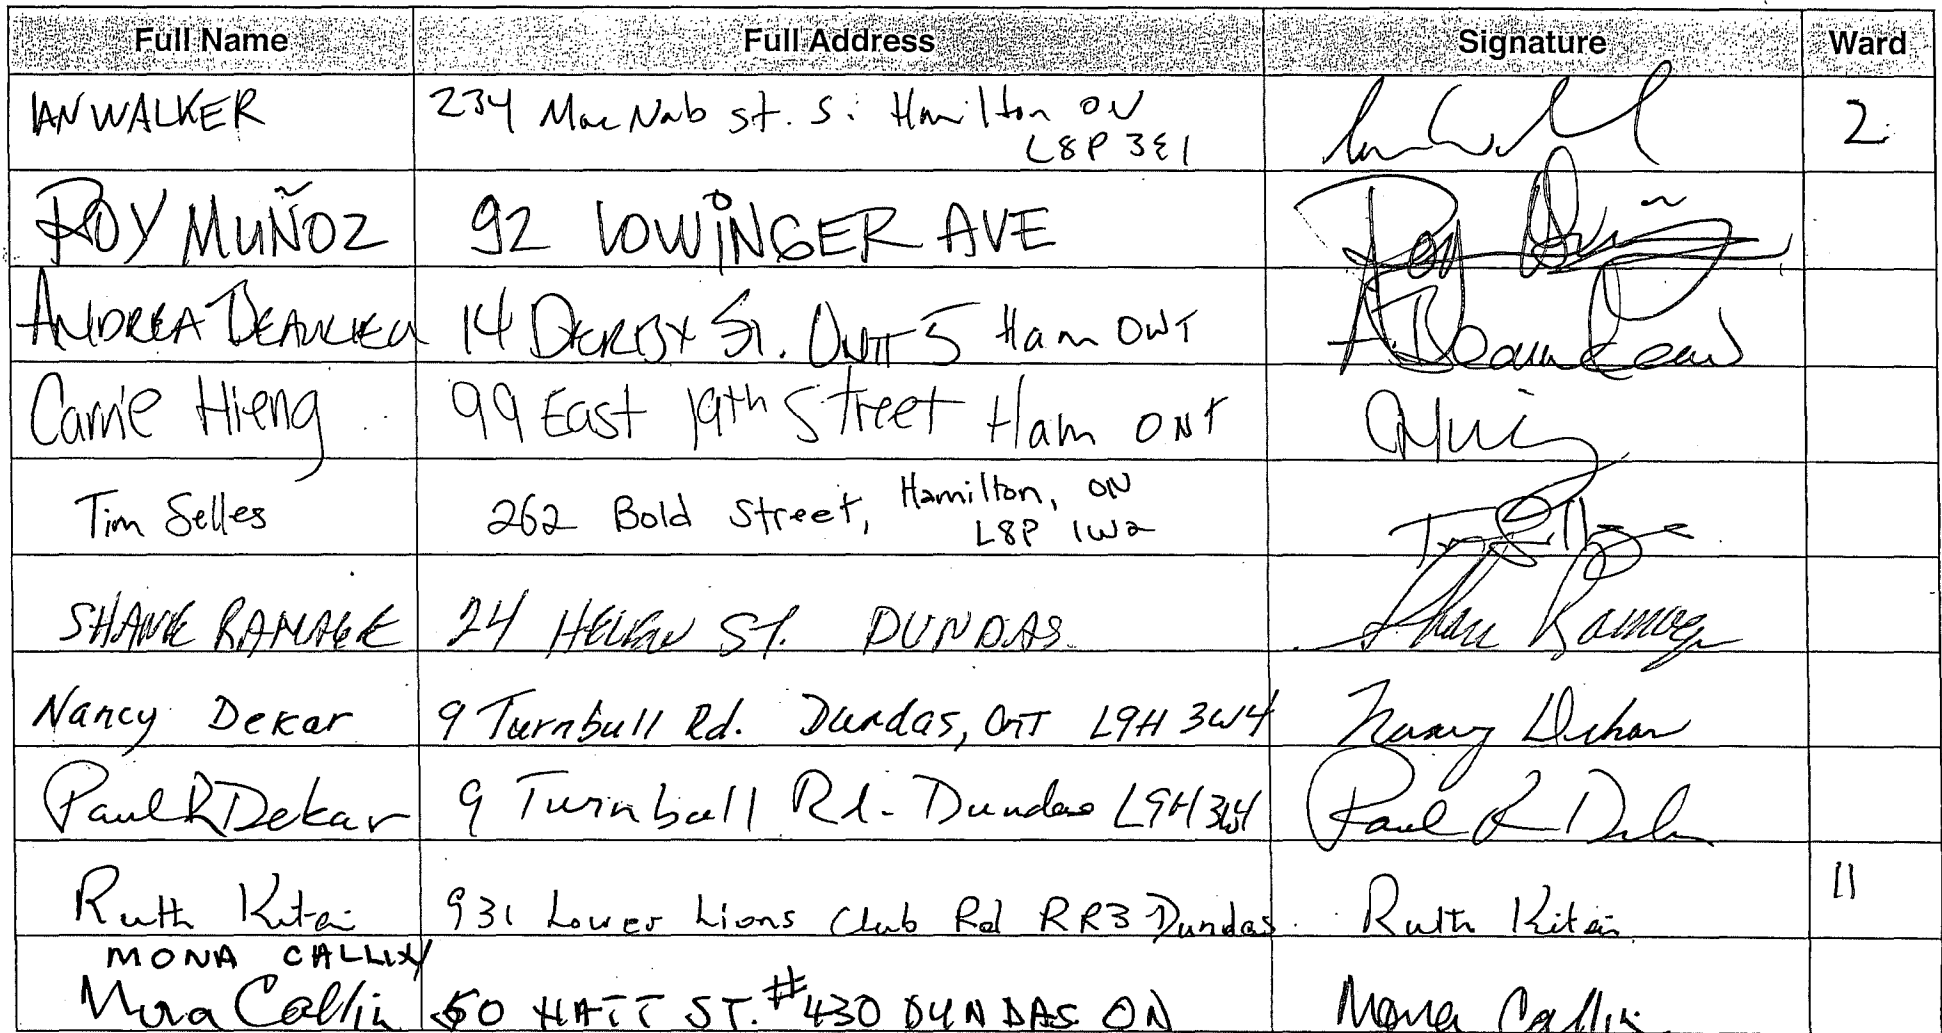 Full Name Full Address Signature Ward
IAN WALKER 234 MacNab St. S. Hamilton ON 2
L8P 3E1
ROY MUÑOZ 92 LOWINGER AVE Roy
ANDREA BEAULIEU 14 DERBY St. UNIT 5 Ham ONT A. Beaulieu
Carrie Hieng 99 East 19th Street Ham ONT
Tim Selles 262 Bold Street, Hamilton, ON
L8P 1W2
SHANE RAMAGE 24 HELEN ST. DUNDAS Shane Ramage
Nancy Dekar 9 Turnbull Rd. Dundas, ONT L9H 3W4 Nancy Dekar
Paul R Dekar 9 Turnbull Rd. Dundas L9H 3W4 Paul R Dekar
Ruth Kitai 931 Lower Lions Club Rd RR3 Dundas Ruth Kitai 11
MONA CALLIN
Mona Callin 50 HATT ST. #430 DUNDAS ON Mona Callin